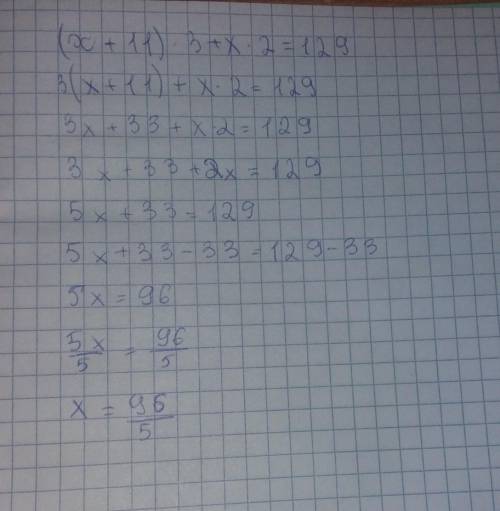 (x + 11) · 3 + x · 2 = 129
3(x + 11) + x · 2 = 129
3x + 33 + x · 2 = 129
3x + 33 + 2x = 129
5x + 33 = 129
5x + 33 - 33 = 129 - 33
5x = 96
5x/5 = 96/5
x = 96/5